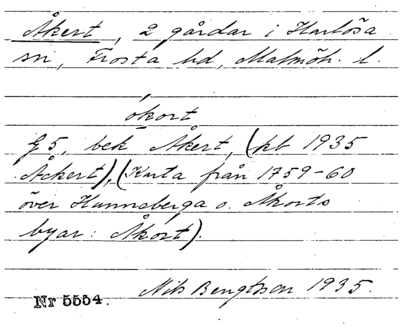 Åkert, 2 gårdar i Harlösa
sn, Frosta hd, Malmöh. l.
ókort
G 5, bek Åkert, (kb 1935
Åckert), (Karta från 1759-60
över Hunneberga o. Åkorts
byar: Åkort).
Nils Bengtson 1935.
Nr 5554.